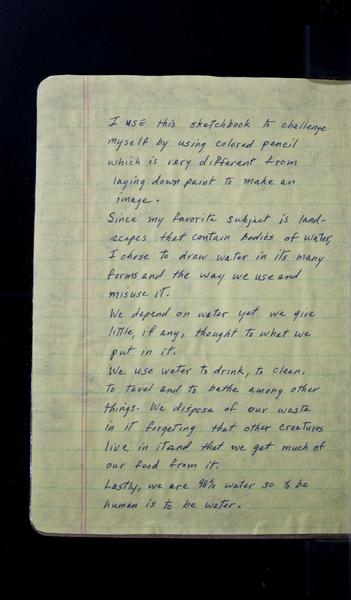 I use this sketchbook to challenge
myself by using colored pencil
which is very different from
laying down paint to make an
image.
Since my favorite subject is land-
scapes that contain bodies of water,
I chose to draw water in its many
forms and the way we use and
misuse it.
We depend on water yet we give
little, if any, thought to what we
put in it.
We use water to drink, to clean,
to tavel and to bathe among other
things. We dispose of our waste
in it forgeting that other creatures
live in it and that we get much of
our food from it.
Lastly, we are 98% water so to be
human is to be water.